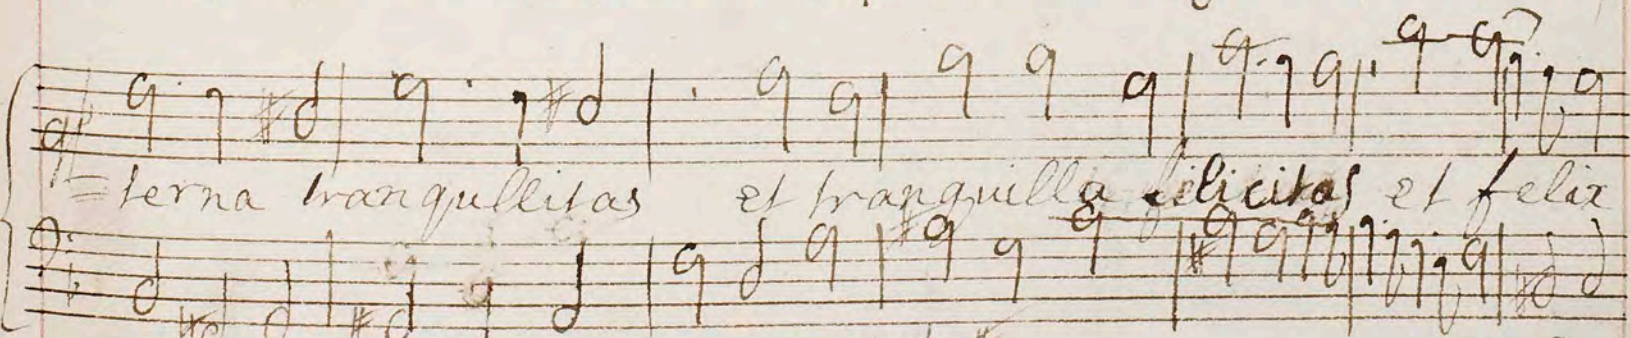 =terna tranqullitas et tranquilla felicitas et felix